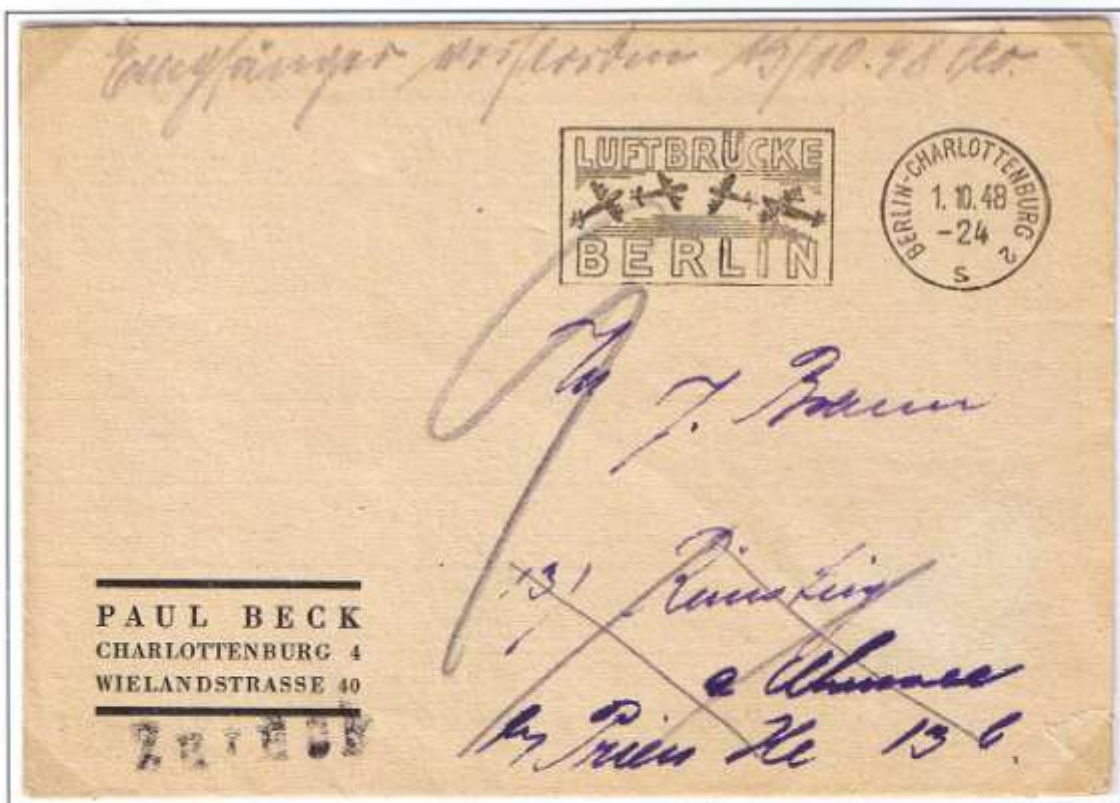 Empfänger verstorben 13/10.48
LUFTBRÜCKE
BERLIN
BERLIN-CHARLOTTENBURG 2
1.10.48
-24
S
J. Braun
Rimsting
a Chiemsee
Prien 13 b.
PAUL BECK
CHARLOTTENBURG 4
WIELANDSTRASSE 40
Zurück